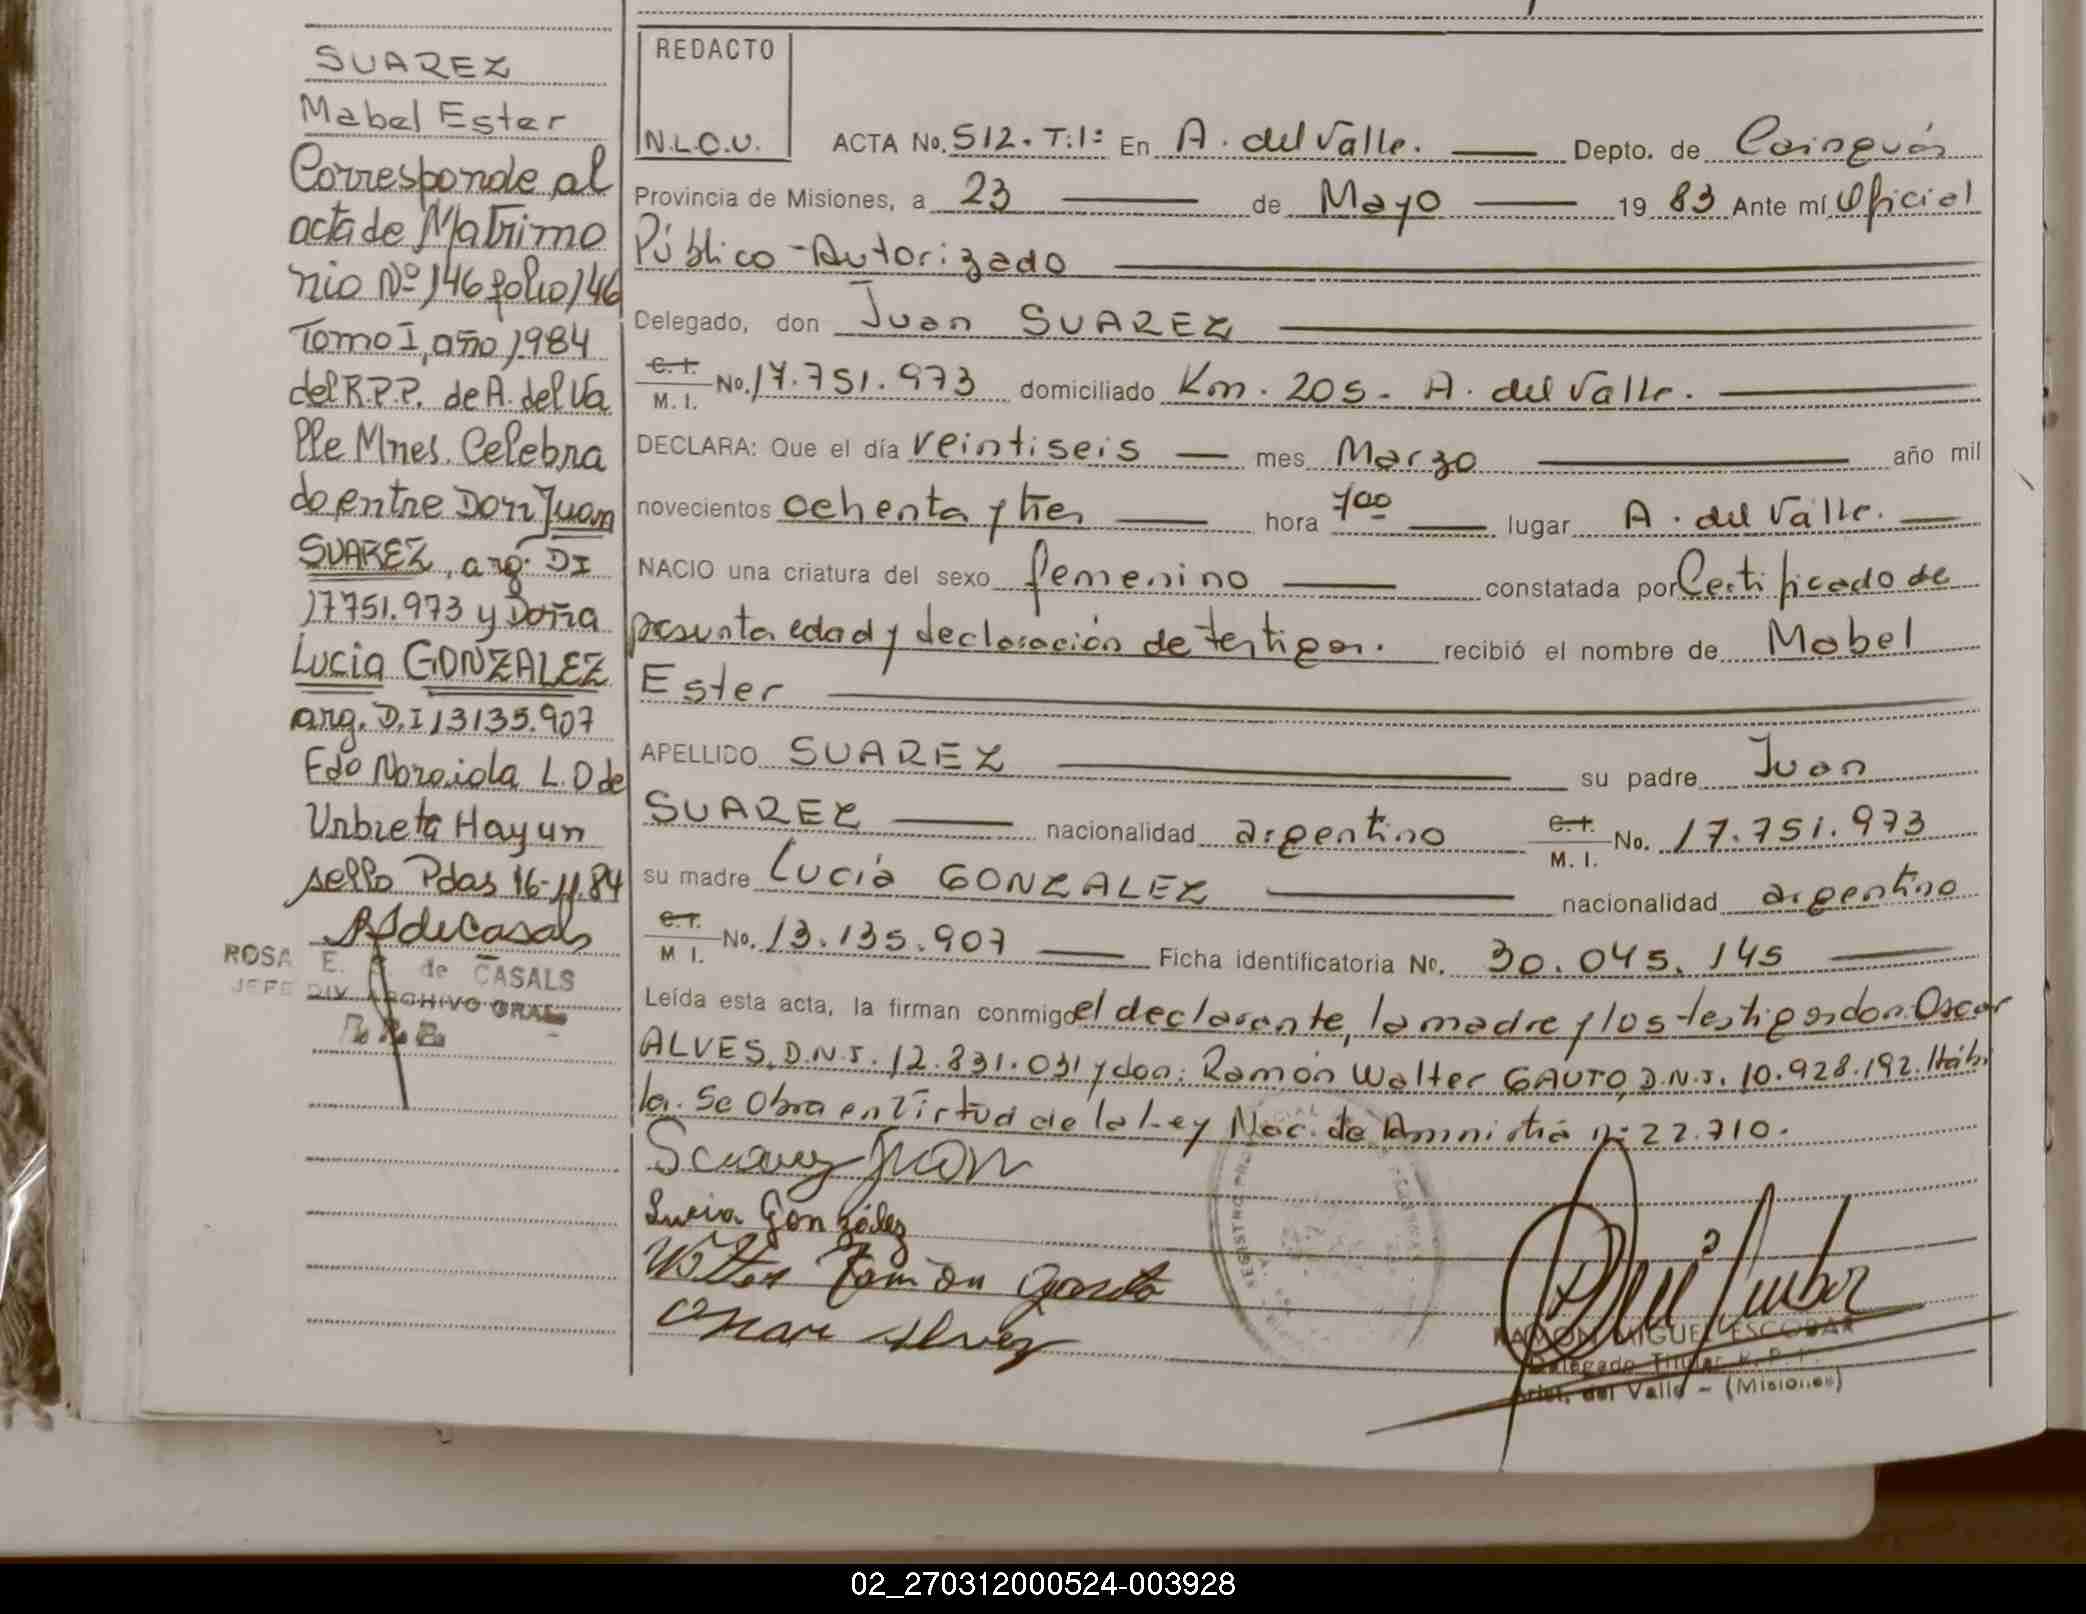 SUAREZ
Mabel Ester
Corresponde al
acta de Matrimo
nio Nº 146 folio 146
Tomo I, año 1984
del R.P.P. de A. del Va
lle Mnes. Celebra
do entre Don Juan
SUAREZ, arg. DI
17751.973 y Doña
Lucia GONZALEZ
arg. D.I 13135.907
Fdo L. O de
Urbieta Hay un
sello Pdas 16-11-84
ROSA E. S. de CASALS
JEFE DIV. ARCHIVO GRAL
REDACTO
N.L.O.U.
ACTA No. 512. T:1º En A. del Valle. Depto. de Cainguás
Provincia de Misiones, a 23 de Mayo 19 83 Ante mí Oficial
Público - Autorizado
Delegado, don Juan SUAREZ
C. I.
M. I. No. 17.751.973 domiciliado Km. 205 - A. del Valle.
DECLARA: Que el día veintiseis mes Marzo año mil
novecientos ochenta y tres hora 7oo lugar A. del Valle.
NACIO una criatura del sexo femenino constatada por Certificado de
presunta edad y declaración de testigos. recibió el nombre de Mabel
Ester
APELLIDO SUAREZ su padre Juan
SUAREZ nacionalidad argentino C. I.
M. I. No. 17.751.973
su madre Lucía GONZALEZ nacionalidad argentina
C. I.
M I. No. 13.135.907 Ficha identificatoria No. 30.045.145
Leída esta acta, la firman conmigo el declarante, la madre y los testigos don: Oscar
ALVES, D.N.I. 12.831.031 y don: Ramón Walter GAUTO, D.N.I. 10.928.192. Hábi
les. Se Obra en Virtud de la Ley Nac. de Amnistía nº 22.710.
Suarez Juan
Lucia González
Walter Ramón Gauto
Oscar Alvez
RAMON MIGUEL ESCOBAR
Delegado Titular R. P. P.
Arist. del Valle - (Misiones)
02_270312000524-003928